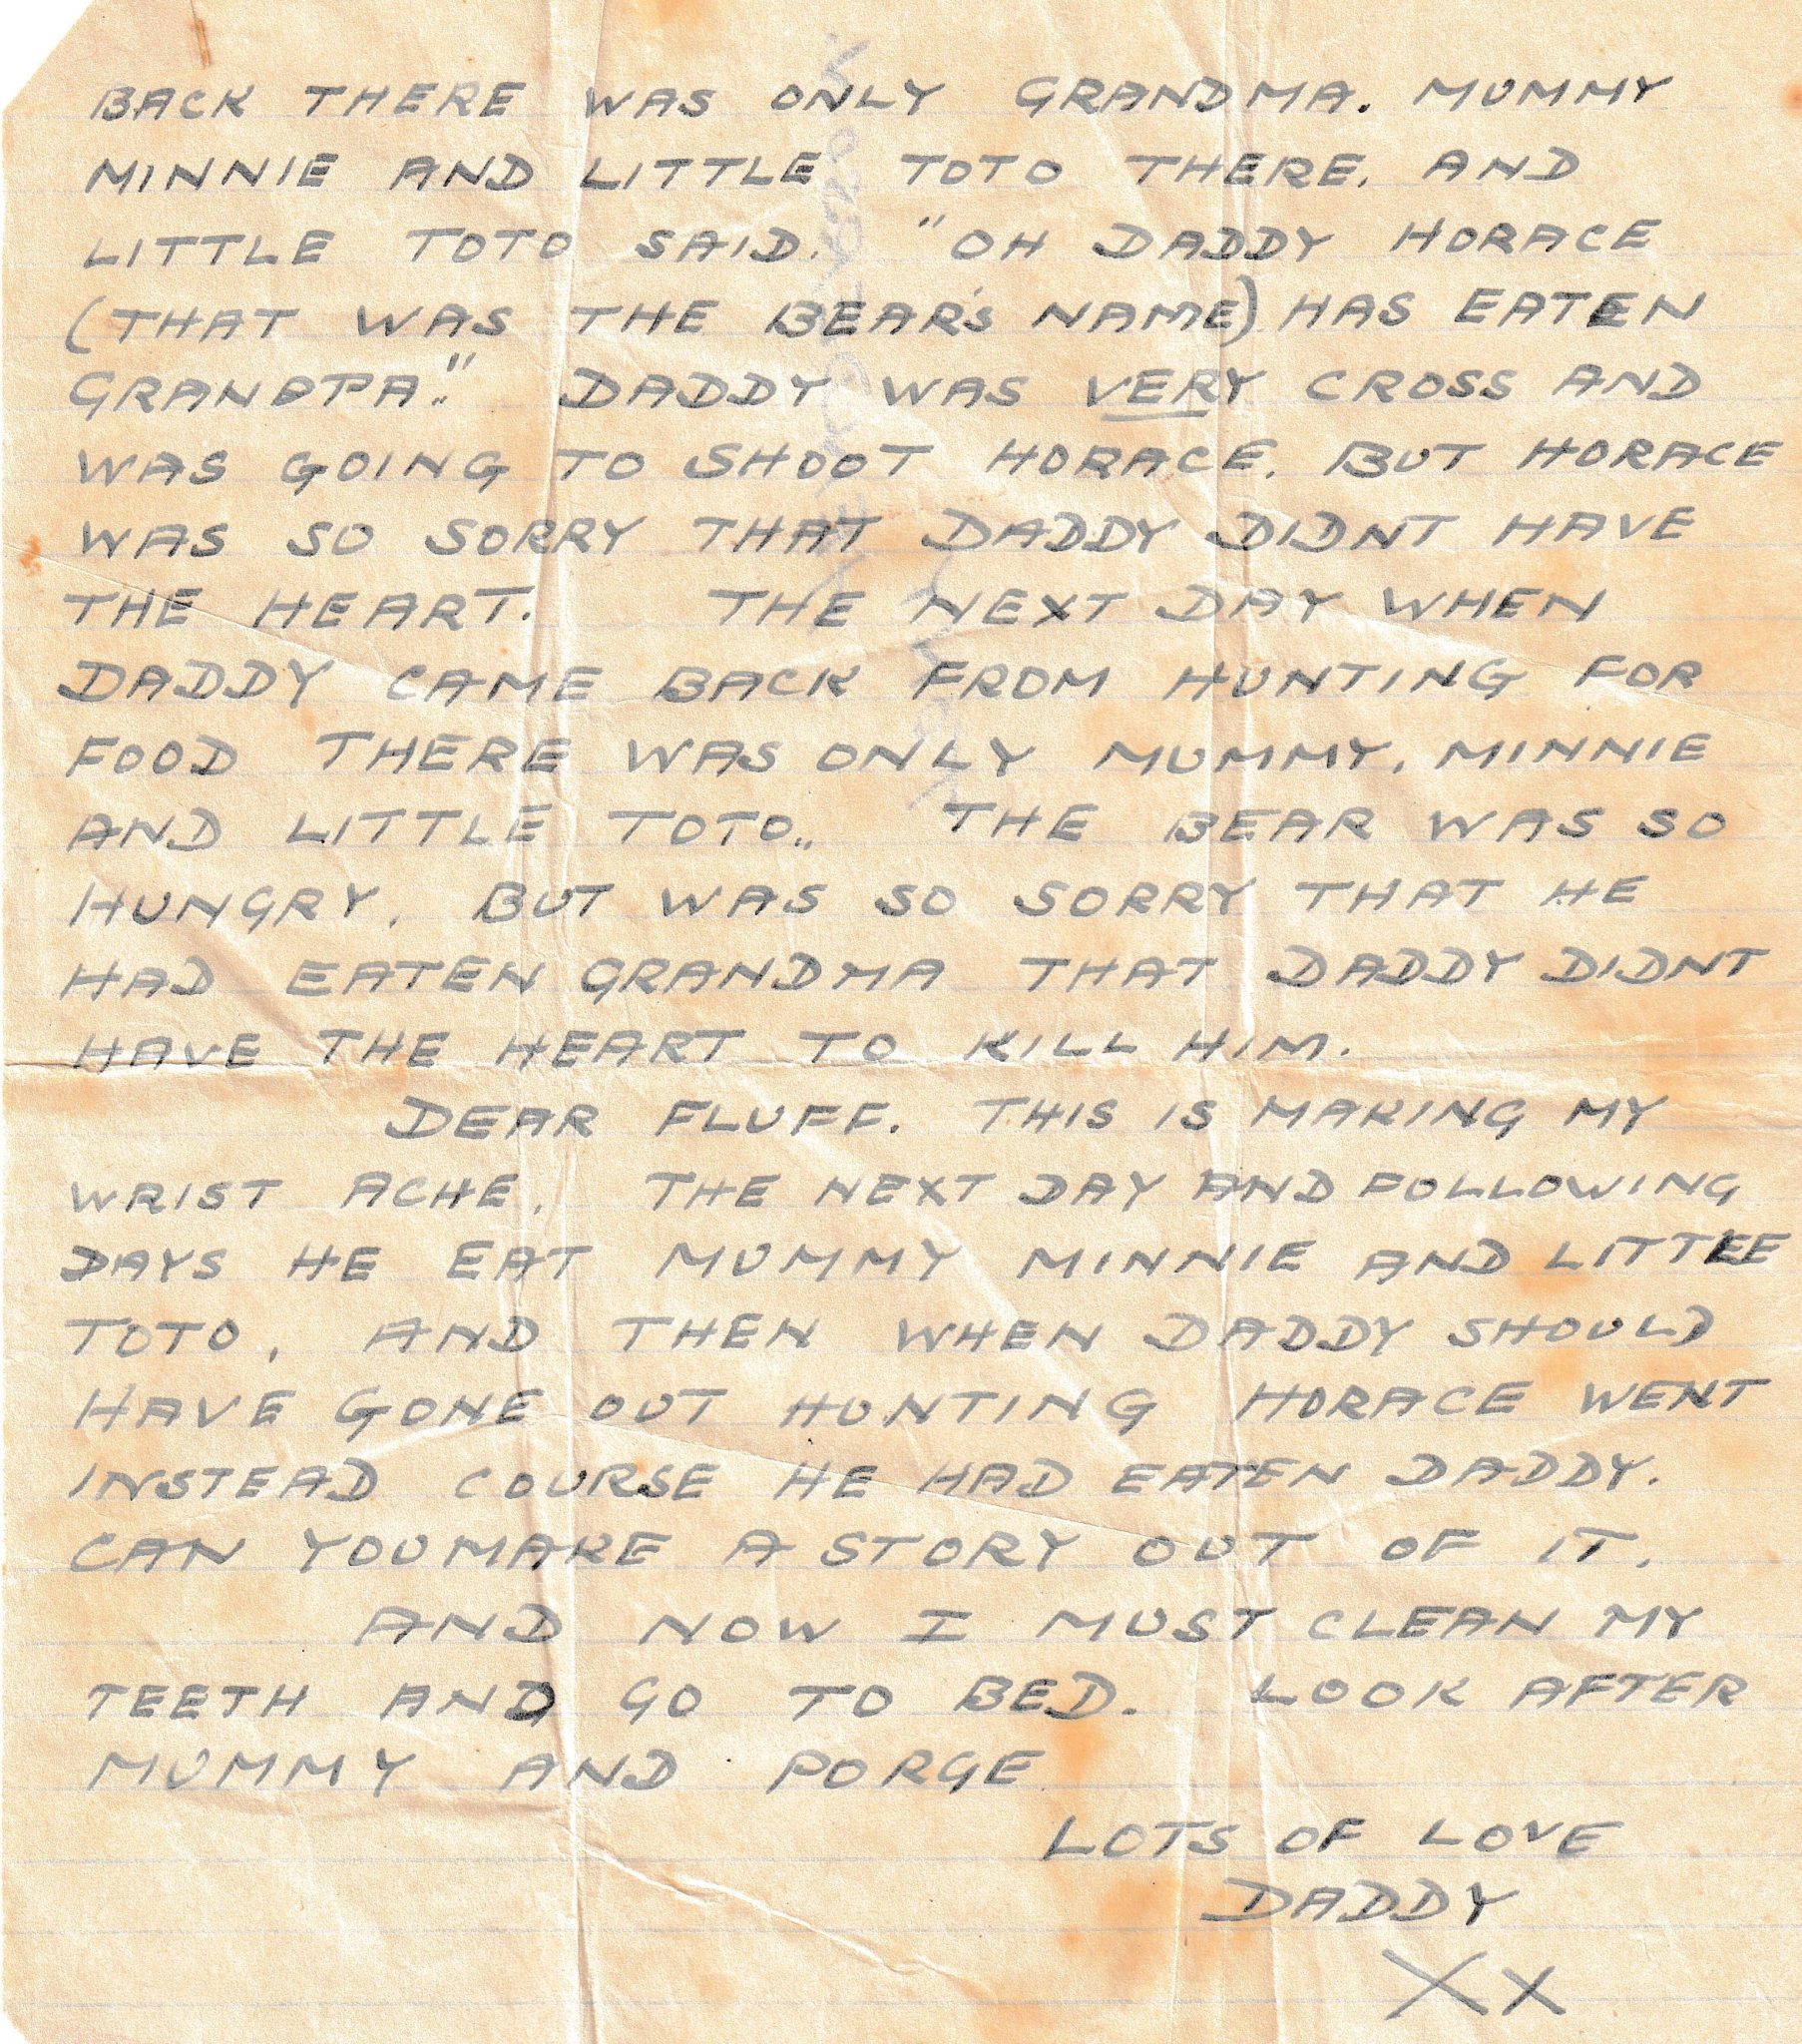 BACK THERE WAS ONLY GRANDMA. MUMMY
MINNIE AND LITTLE TOTO THERE. AND
LITTLE TOTO SAID. "OH DADDY HORACE
(THAT WAS THE BEAR'S NAME) HAS EATEN
GRANDPA." DADDY WAS VERY CROSS AND
WAS GOING TO SHOOT HORACE. BUT HORACE
WAS SO SORRY THAT DADDY DIDNT HAVE
THE HEART. THE NEXT DAY WHEN
DADDY CAME BACK FROM HUNTING FOR
FOOD THERE WAS ONLY MUMMY, MINNIE
AND LITTLE TOTO.. THE BEAR WAS SO
HUNGRY, BUT WAS SO SORRY THAT HE
HAD EATEN GRANDMA THAT DADDY DIDNT
HAVE THE HEART TO KILL HIM.
DEAR FLUFF. THIS IS MAKING MY
WRIST ACHE. THE NEXT DAY AND FOLLOWING
DAYS HE EAT MUMMY MINNIE AND LITTLE
TOTO, AND THEN WHEN DADDY SHOULD
HAVE GONE OUT HUNTING HORACE WENT
INSTEAD COURSE HE HAD EATEN DADDY.
CAN YOU MAKE A STORY OUT OF IT.
AND NOW I MUST CLEAN MY
TEETH AND GO TO BED. LOOK AFTER
MUMMY AND PORGE
LOTS OF LOVE
DADDY
XX